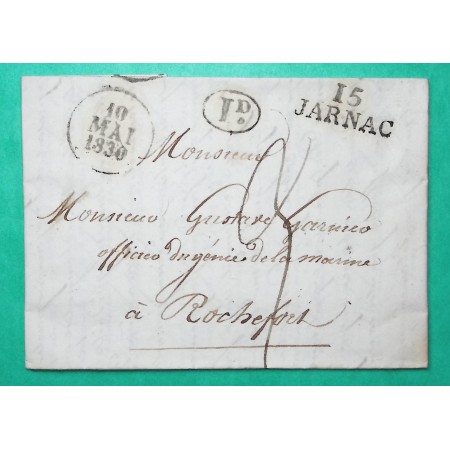 10
MAI
1830
1D.
15
JARNAC
Monsieur
Monsieur Gustave Garnier
officier du génie de la marine
à Rochefort